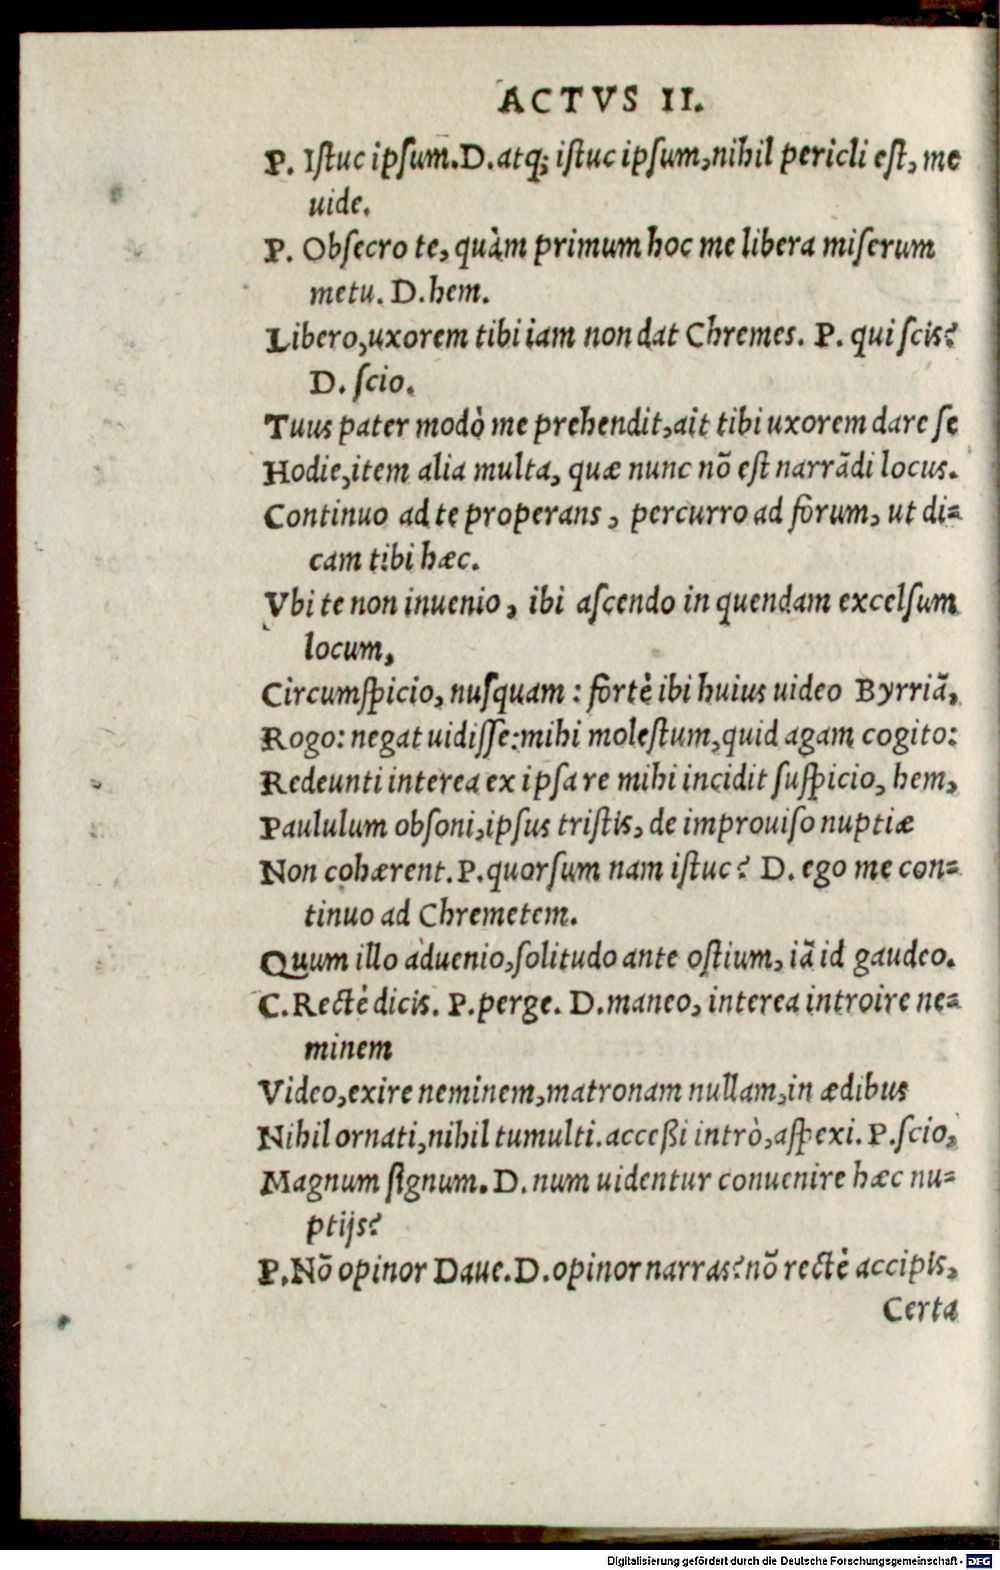 ACTVS II.
P. Iſtuc ipſum. D. atq; iſtuc ipſum, nihil pericli eſt, me
uide.
P. Obſecro te, quàm primum hoc me libera miſerum
metu. D. hem.
Libero, uxorem tibi iam non dat Chremes. P. qui ſcis?
D. ſcio.
Tuus pater modò me prehendit, ait tibi uxorem dare ſe
Hodie, item alia multa, quæ nunc nō eſt narrādi locus.
Continuo ad te properans, percurro ad forum, ut di=
cam tibi hæc.
Vbi te non inuenio, ibi aſcendo in quendam excelſum
locum,
Circumſpicio, nuſquam: fortè ibi huius uideo Byrriā,
Rogo: negat uidiſſe: mihi moleſtum, quid agam cogito:
Redeunti interea ex ipſa re mihi incidit ſuſpicio, hem,
Paululum obſoni, ipſus triſtis, de improuiſo nuptiæ
Non cohærent. P. quorſum nam iſtuc? D. ego me con=
tinuo ad Chremetem.
Quum illo aduenio, ſolitudo ante oſtium, iā id gaudeo.
C. Rectè dicis. P. perge. D. maneo, interea introire ne=
minem
Video, exire neminem, matronam nullam, in ædibus
Nihil ornati, nihil tumulti. acceßi intrò, aſpexi. P. ſcio,
Magnum ſignum. D. num uidentur conuenire hæc nu=
ptijs?
P. Nō opinor Daue. D. opinor narras? nō rectè accipis,
Certa
Digitalisierung gefördert durch die Deutsche Forschungsgemeinschaft - DFG